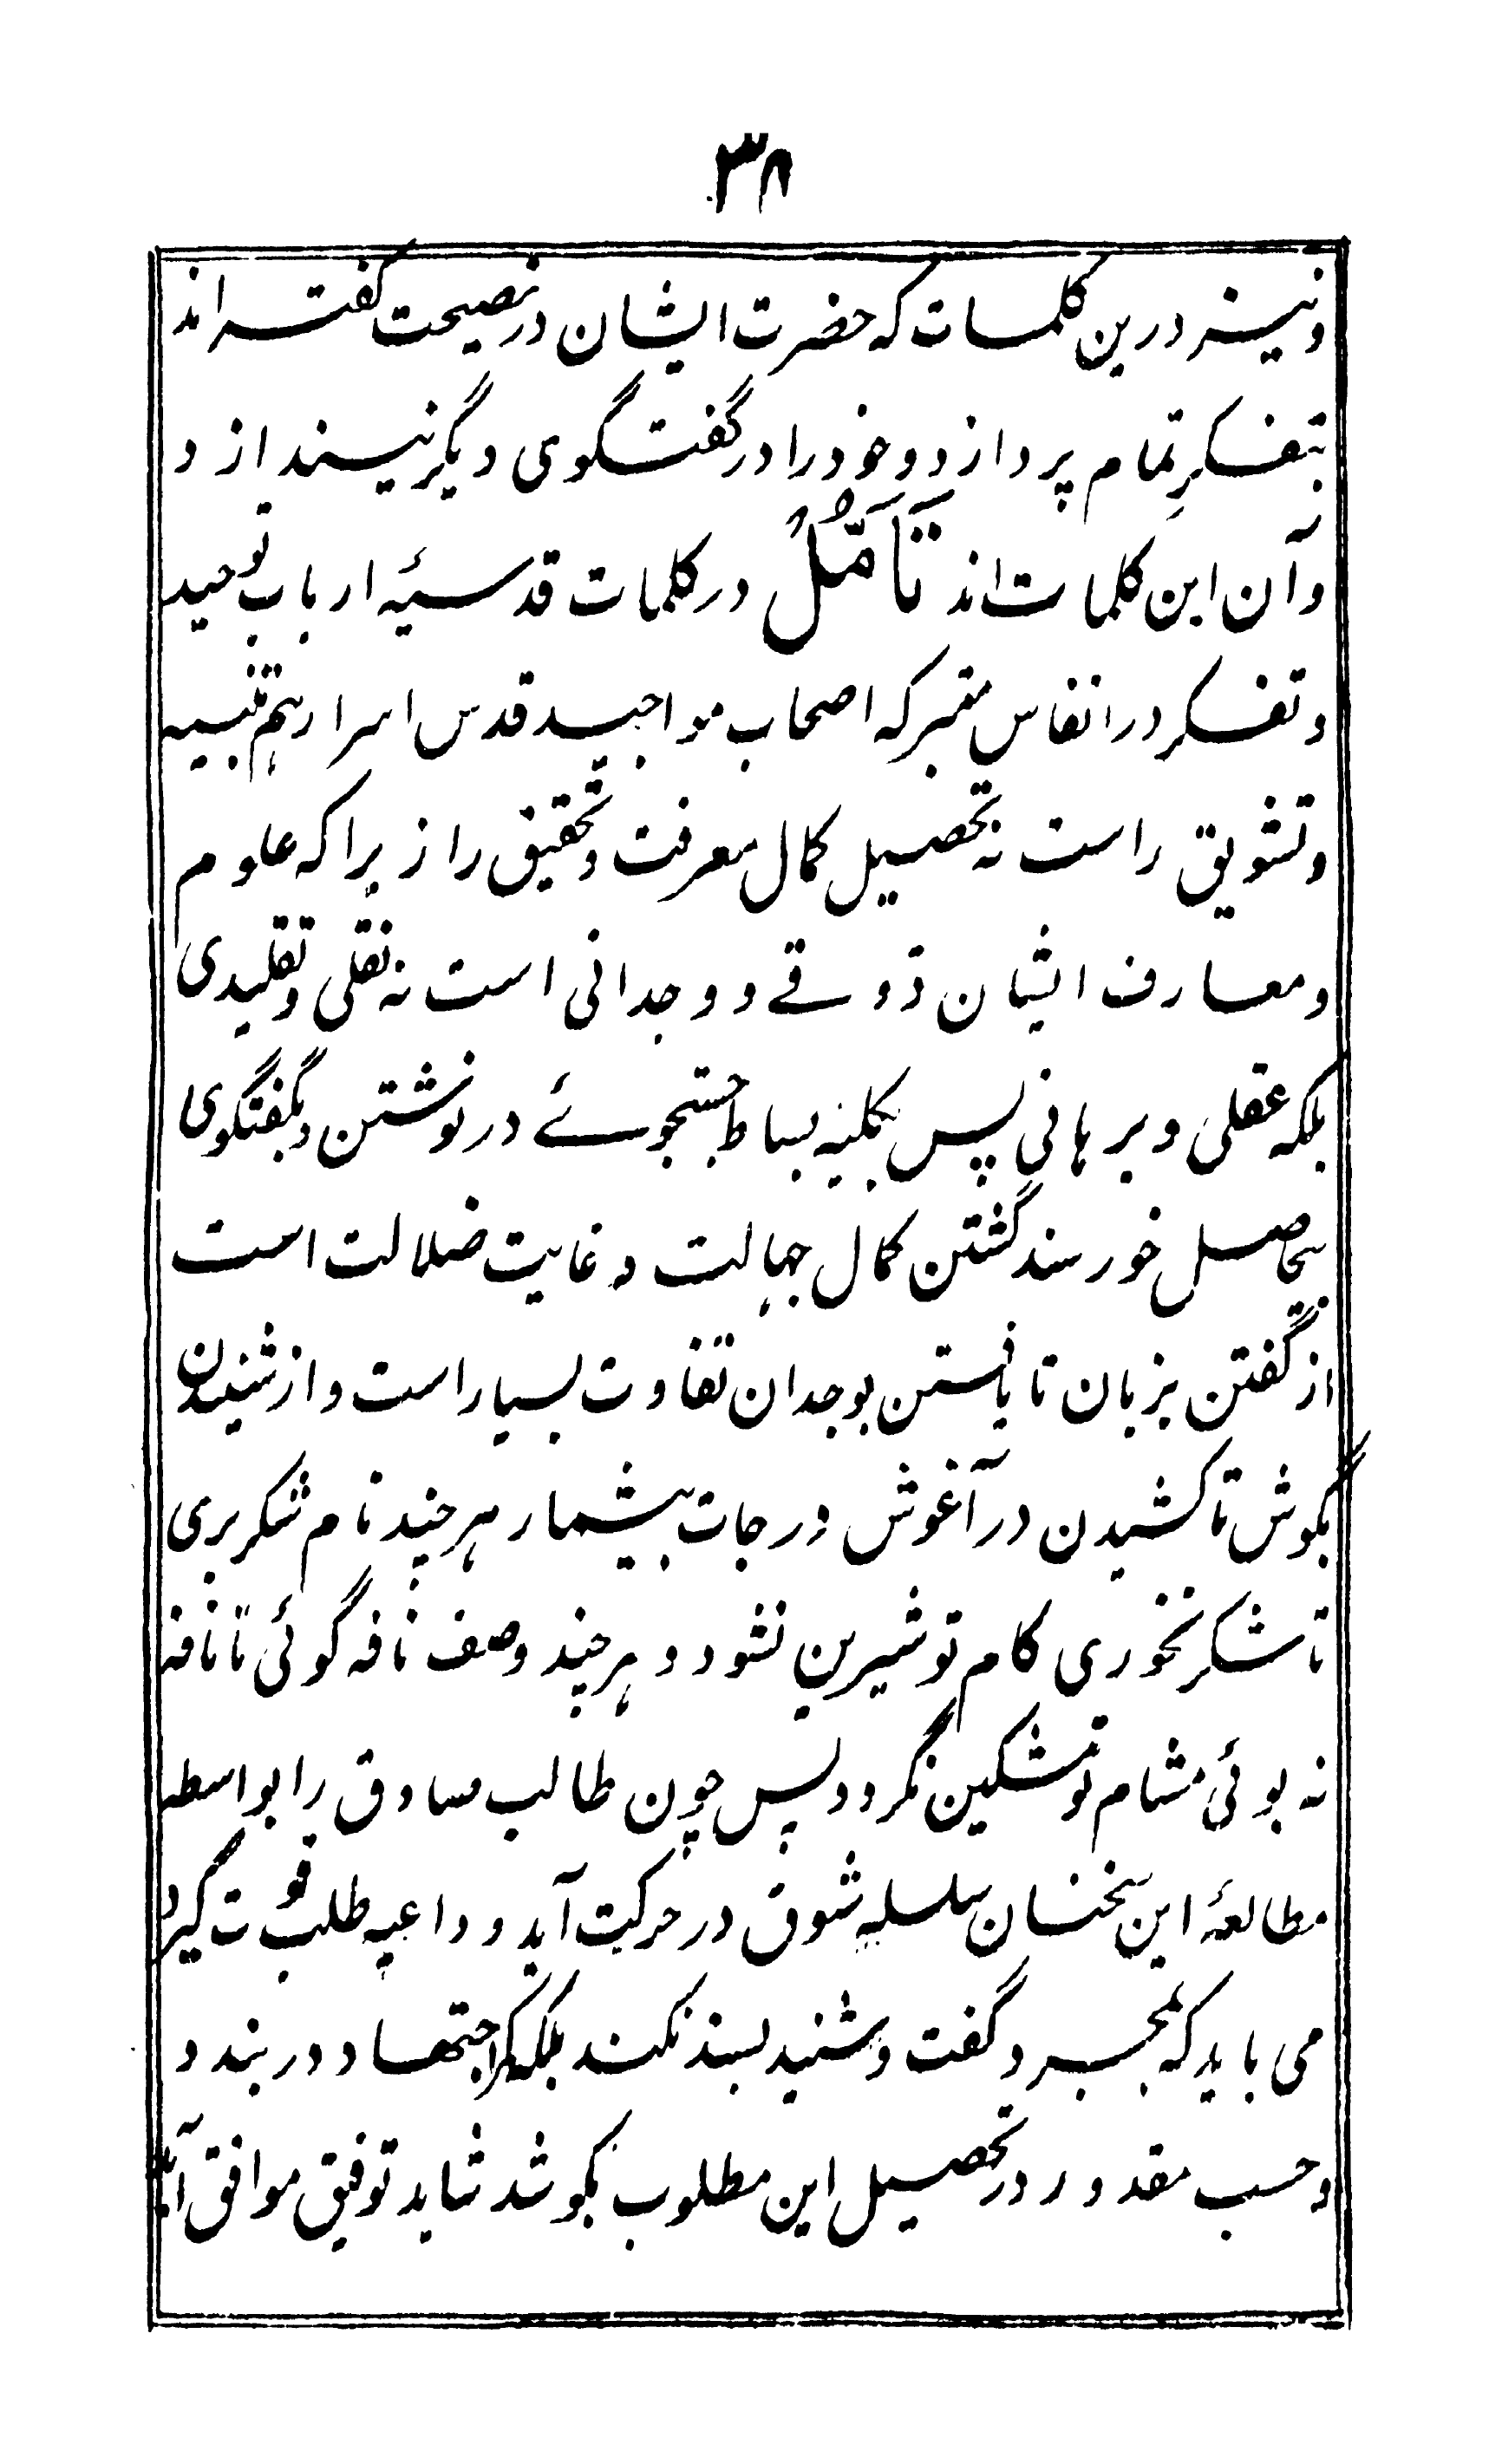 ۳۸
و نیز درین کلمات که حضرت ایشان در نصیحت گفته اند
بتفکرِ تمام پردازد و خود را در گفتگوی دیگر نیندازد
و آن این کلمات اند تَأَمُّلُ در کلمات قدسیۂ ارباب توحید
و تفکر در انفاس متبرکه اصحاب مواجید قدس اسرارہم تنبیه
و تشویق راست نه تحصیل کمال معرفت و تحقیق را زیرا که علوم
و معارف ایشان ذوقے و وجدانی است نه نقلی و تقلیدی
بلکه عقلی و برهانی پس بکلیه بساط جستجوئے در نوشتن و بگفتگوی
بیحاصل خورسند گشتن کمال جهالت و غایت ضلالت است
از گفتن بزبان تا یافتن بوجدان تفاوت بسیار است و از شنیدن
بگوش تا کشیدن در آغوش درجات بیشمار هر چند نام شکر بری
تا شکر نخوری کام تو شیرین نشود و هر چند وصف نافه گوئی تا نافه
نه بوئی مشام تو مشکین نگردد پس چون طالب صادق را بواسطه
مطالعۂ این سخنان سلسله شوق در حرکت آید و داعیه طلب قوت گیرد
می باید که بمجرد گفت و شنید بسند نکند بلکه کمر اجتهاد در بندد
و حسب مقدور در تحصیل این مطلوب بکوشد شاید توفیق موافق آید